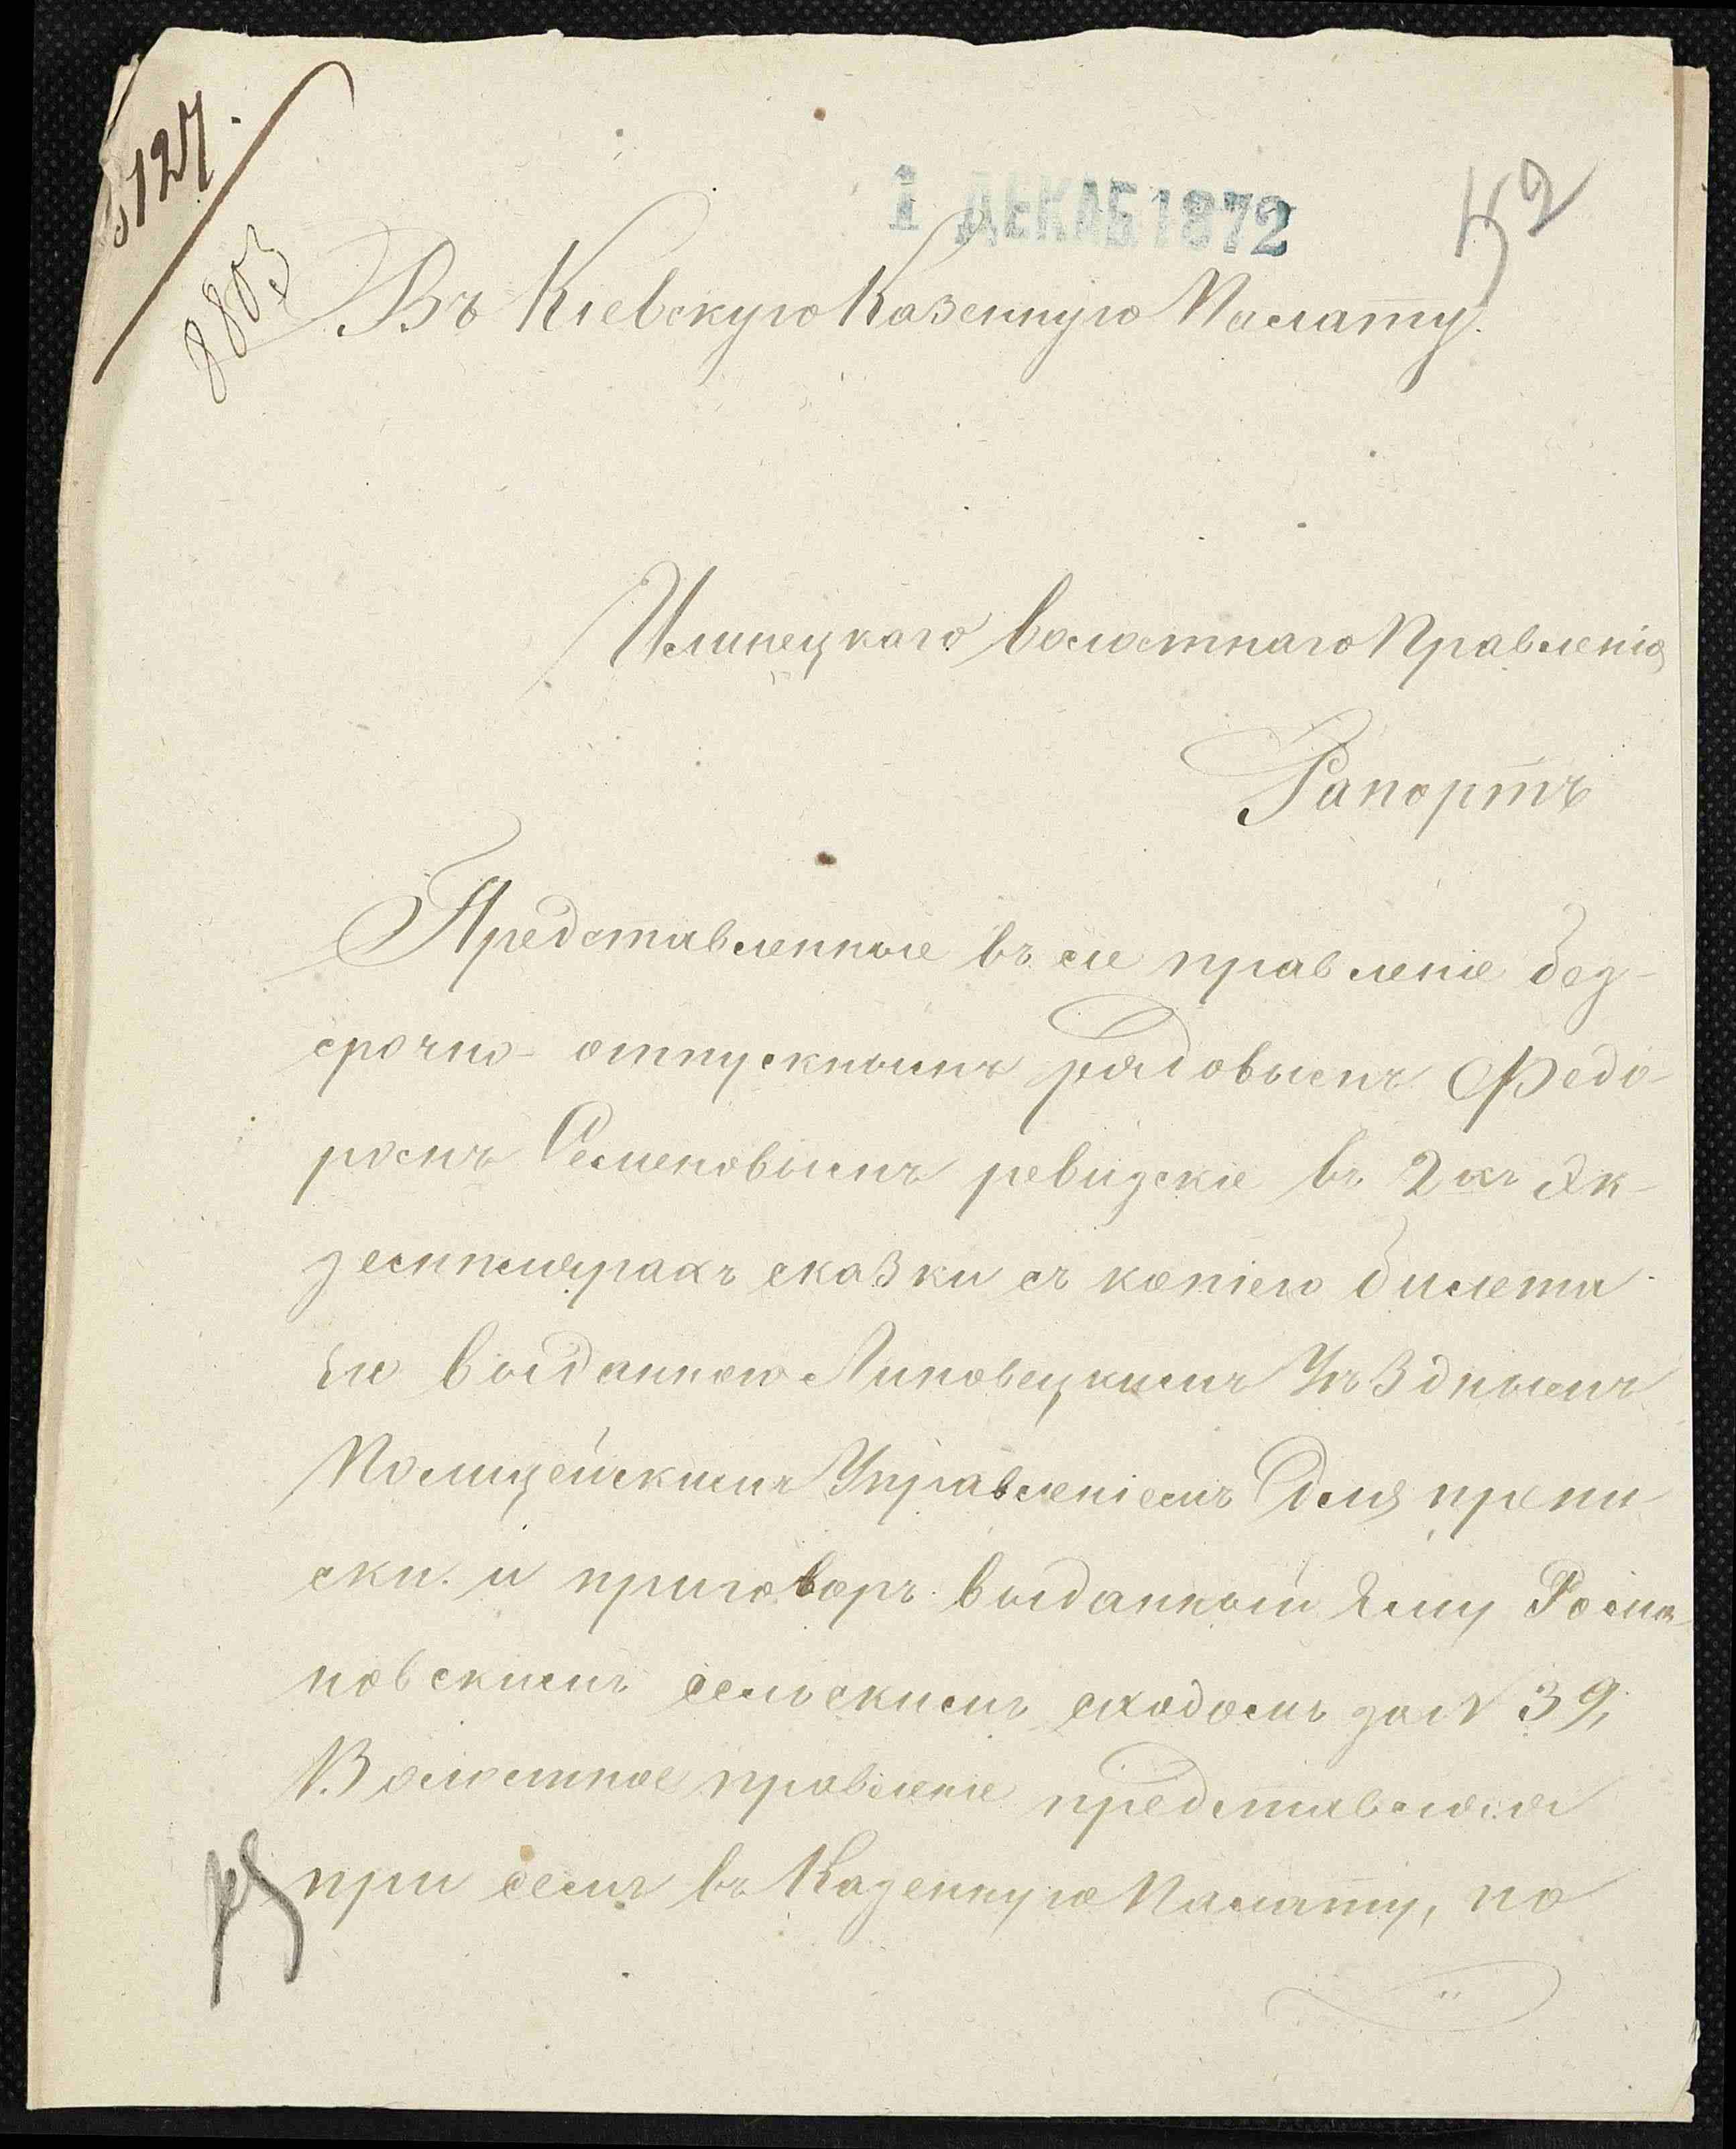 5127.
8803
1 ДЕКАБ 1872
52
Въ Кіевскую Казенную Палату.
Илинецкаго волостнаго Правленія
Рапортъ
Представленные въ сіе правленіе без-
срочно-отпускнымъ рядовымъ Федо-
ромъ Семеновымъ ревизскіе въ 2хъ Эк-
земплярахъ сказки съ копіею билета
выданною Липовецкимъ Уѣзднымъ
Полицейскимъ Управленіемъ для припи
ски. и приговоръ выданный Ему Рома-
новскимъ сельскимъ сходомъ за № 39,
Волостное правленіе представляя
при семъ въ Казенную Палату, по